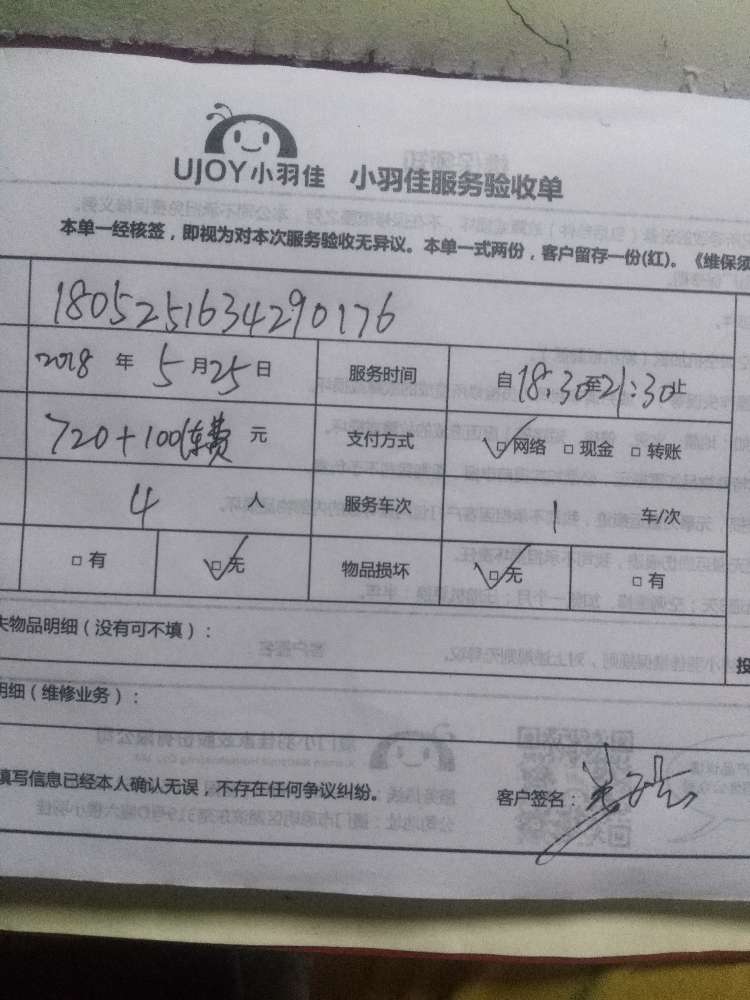 UJOY小羽佳 小羽佳服务验收单
本单一经核签，即视为对本次服务验收无异议。本单一式两份，客户留存一份(红)。《维保须
1805251634290176
2018 年 5 月 25 日 服务时间 自 18:30 至 21:30 止
720+100 费 元 支付方式 ✓□ 网络 □ 现金 □ 转账
4 人 服务车次 1 车/次
□ 有 ✓□ 无 物品损坏 ✓□ 无 □ 有
失物品明细（没有可不填）：
明细（维修业务）：
填写信息已经本人确认无误，不存在任何争议纠纷。 客户签名：